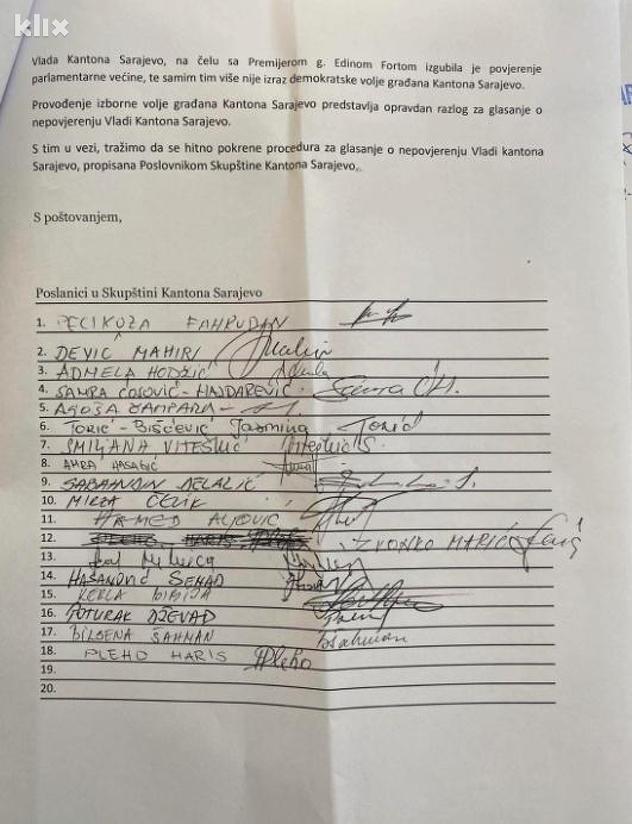 klix
Vlada Kantona Sarajevo, na čelu sa Premijerom g. Edinom Fortom izgubila je povjerenje
parlamentarne većine, te samim tim više nije izraz demokratske volje građana Kantona Sarajevo.
Provođenje izborne volje građana Kantona Sarajevo predstavlja opravdan razlog za glasanje o
nepovjerenju Vladi Kantona Sarajevo.
S tim u vezi, tražimo da se hitno pokrene procedura za glasanje o nepovjerenju Vladi kantona
Sarajevo, propisana Poslovnikom Skupštine Kantona Sarajevo.
S poštovanjem,
Poslanici u Skupštini Kantona Sarajevo
1. PECIKOZA FAHRUDIN
2. DEVIĆ MAHIR
3. ADMELA HODŽIĆ
4. SAMRA ĆOSOVIĆ-HAJDAREVIĆ
5.
6. TORIĆ-BIŠĆEVIĆ Jasmina Torić
7. SMILJANA VITEŠKIĆ
8. AMRA HASAGIĆ
9. SABAHUDIN DELALIĆ
10. MIRZA ČELIK
11. HAMED ALJOVIĆ
12. ZVONKO MARIĆ
13.
14. HASANOVIĆ SENAD
15. KERLA BIBIJA
16. POTURAK DŽEVAD
17. BILSENA ŠAHMAN Bšahman
18. PLEHO HARIS HPleho
19.
20.